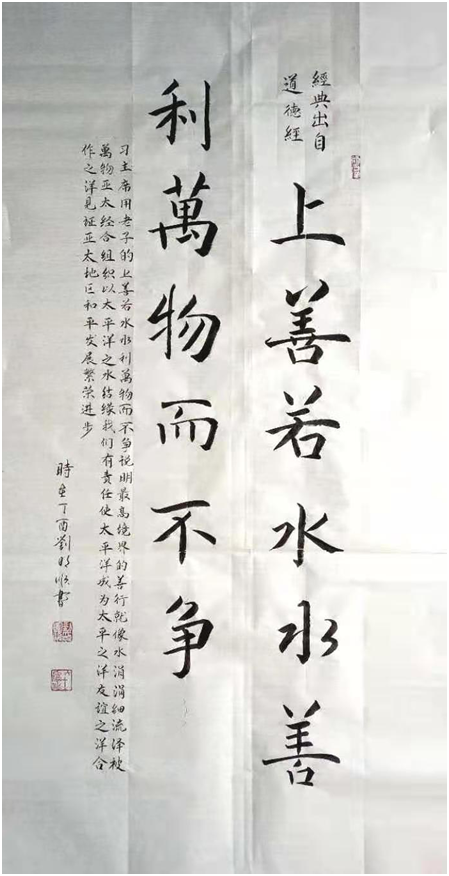 經典出自
道德經
上善若水水善
利萬物而不争
习主席用老子的上善若水水利萬物而不争说明最高境界的善行就像水涓涓细流泽被
萬物亚太经合组织以太平洋之水结缘我们有责任使太平洋成为太平之洋友谊之洋合
作之洋见证亚太地区和平发展繁荣进步
時在丁酉劉明順書